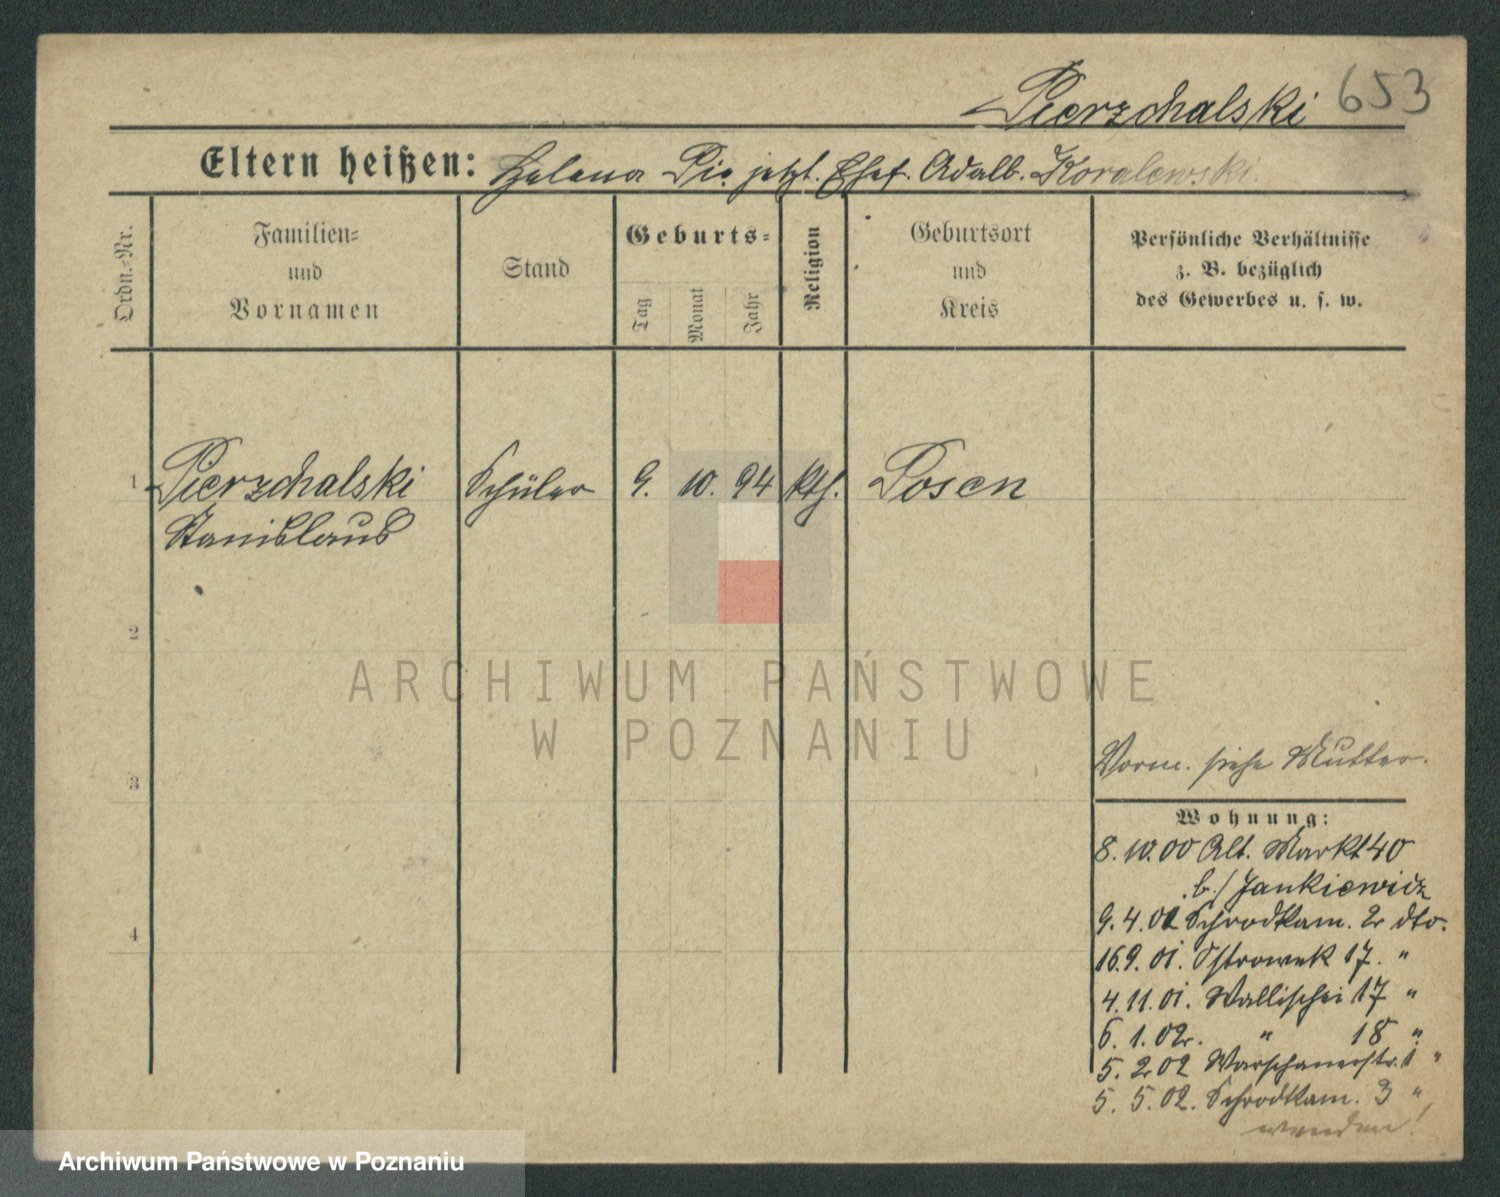 Pierzchalski 653
Eltern heißen: Helena Pie. jetzt. Ehef. Adalb. Koralewski.
Ordn.-Nr.
Familien-
und
Vornamen
Stand
Geburts-
Tag
Monat
Jahr
Religion
Geburtsort
und
Kreis
Persönliche Verhältnisse
z. B. bezüglich
des Gewerbes u. s. w.
1 Pierzchalski Schüler 9. 10. 94 kth. Posen
Stanislaus
2
3
4
ARCHIWUM PAŃSTWOWE
W POZNANIU
Vorm. siehe Mutter.
Wohnung:
8. 10. 00 Alt. Markt 40
b./ Jankiewicz
9. 4. Schrodkam. 2 dto.
16 9. 01. Ostrowek 17. "
4. 11. 01. Wallischei 17 "
6. 1. 02. " 18 "
5. 2 02 Warschauerstr. 1 "
5. 5. 02. Schrodkam. 3 "
wenden!
Archiwum Państwowe w Poznaniu